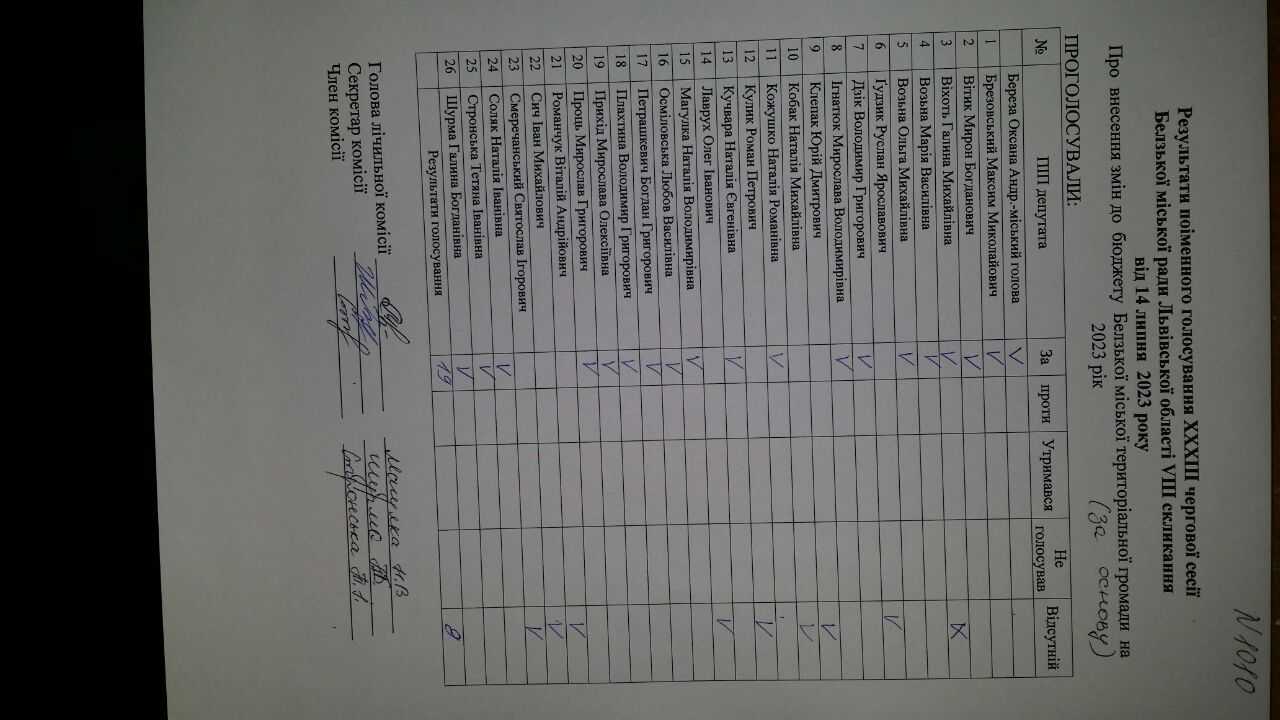 N 1010
Результати поіменного голосування XXXIII чергової сесії
Белзької міської ради Львівської області VIII скликання
від 14 липня 2023 року
Про внесення змін до бюджету Белзької міської територіальної громади на
2023 рік (За основу)
ПРОГОЛОСУВАЛИ:
№ ПІП депутата За проти Утримався Не голосував Відсутній
Береза Оксана Андр.-міський голова V
1 Брезовський Максим Миколайович V
2 Вітик Мирон Богданович V
3 Віхоть Галина Михайлівна V X
4 Возьна Марія Василівна V
5 Возьна Ольга Михайлівна V
6 Гудзик Руслан Ярославович V
7 Дзік Володимир Григорович V
8 Ігнатюк Мирослава Володимирівна V
9 Клепак Юрій Дмитрович V
10 Кобак Наталія Михайлівна V
11 Кожушко Наталія Романівна V
12 Кулик Роман Петрович V
13 Кучвара Наталія Євгенівна V
14 Лаврух Олег Іванович V
15 Матулка Наталія Володимирівна V
16 Осміловська Любов Василівна V
17 Петрашкевич Богдан Григорович V
18 Плахтина Володимир Григорович V
19 Прихід Мирослава Олексіївна V
20 Проць Мирослав Григорович V
21 Романчук Віталій Андрійович V
22 Сич Іван Михайлович V
23 Смеречанський Святослав Ігорович V
24 Соляк Наталія Іванівна V
25 Стронська Тетяна Іванівна V
26 Шурма Галина Богданівна V
Результати голосування 19 8
Голова лічильної комісії Матулка Н.В
Секретар комісії Шурма Г.Б.
Член комісії Стронська Т.І.